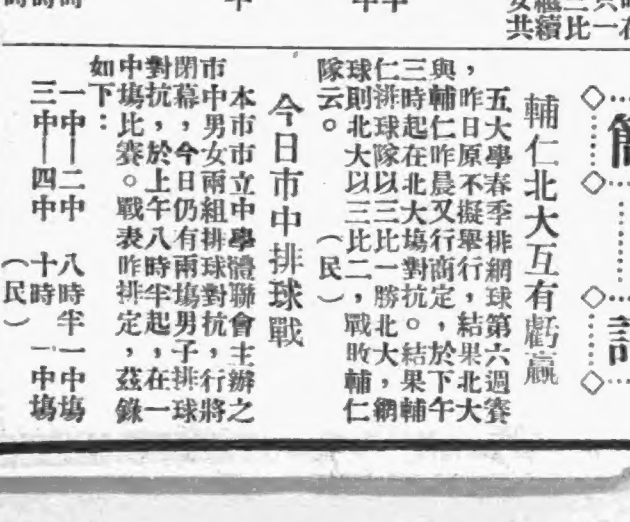 簡
訊
輔仁北大互有虧贏
五大學春季排網球第六週賽
，昨日原不擬舉行，結果北大
與輔仁昨晨又行商定，於下午
三時起在北大場對抗。結果輔
仁排球隊以三比一勝北大，網
球則北大以三比二，戰敗輔仁
隊云。　　　（民）
今日市中排球戰
本市市立中學體聯會主辦之
市中男女兩組排球對抗，行將
閉幕，今日仍有兩塲男子排球
對抗，於上午八時半起，在一
中塲比賽。戰表昨排定，茲錄
如下：
一中—二中　八時半　一中塲
三中—四中　十時　一中塲
（民）